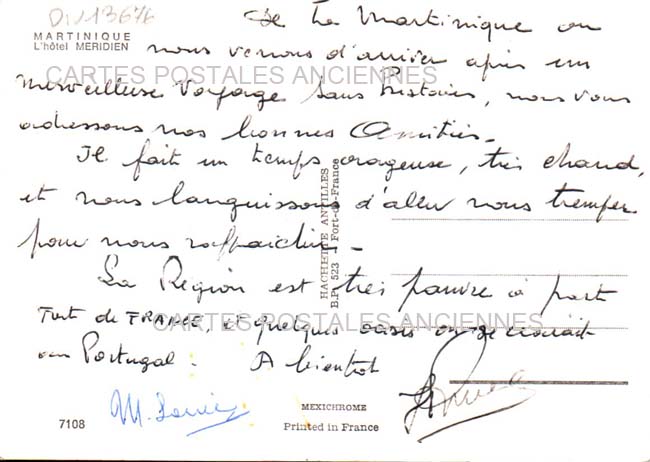 DIV13676
MARTINIQUE
L'hôtel MERIDIEN
De La Martinique ou
nous venons d'arriver après un
merveilleux voyage sans histoires, nous vous
adressons nos bonnes Amitiés.
Il fait un temps orageuse, très chaud,
et nous languissons d'aller nous tremper
pour nous raffraichir.
La Région est très pauvre à part
Fort de FRANCE, à quelques oasis on se croirait
au Portugal. A bientot
CARTES POSTALES ANCIENNES
CARTES POSTALES ANCIENNES
HACHETTE ANTILLES
B.P. 523 - Fort-de-France
7108
MEXICHROME
Printed in France